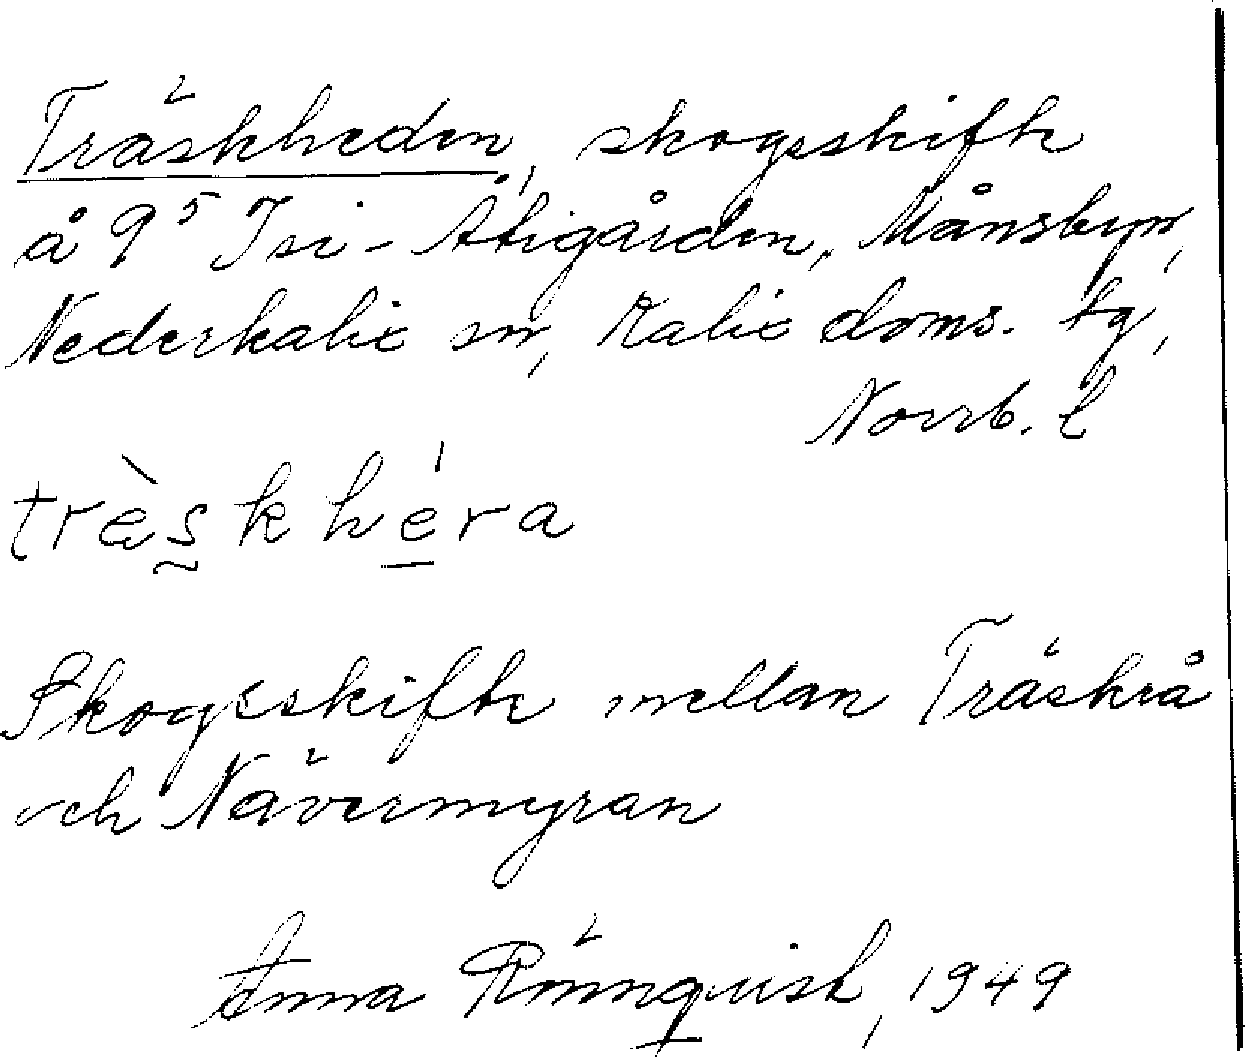 Träskheden, skogsskifte
å 9⁵ Isi-Åtigården, Månsbyn,
Nederkalix sn, Kalix doms. tg,
Norrb. l
trèskhéra
Skogsskifte mellan Träskrå
och Nävermyran
Anna Rönnquist, 1949